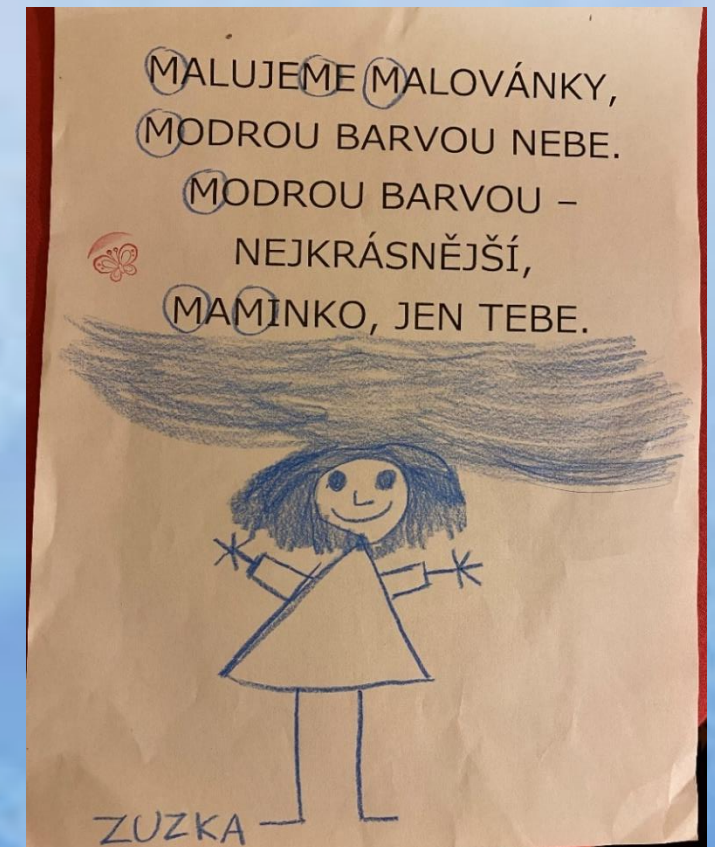 MALUJEME MALOVÁNKY,
MODROU BARVOU NEBE.
MODROU BARVOU –
NEJKRÁSNĚJŠÍ,
MAMINKO, JEN TEBE.
ZUZKA